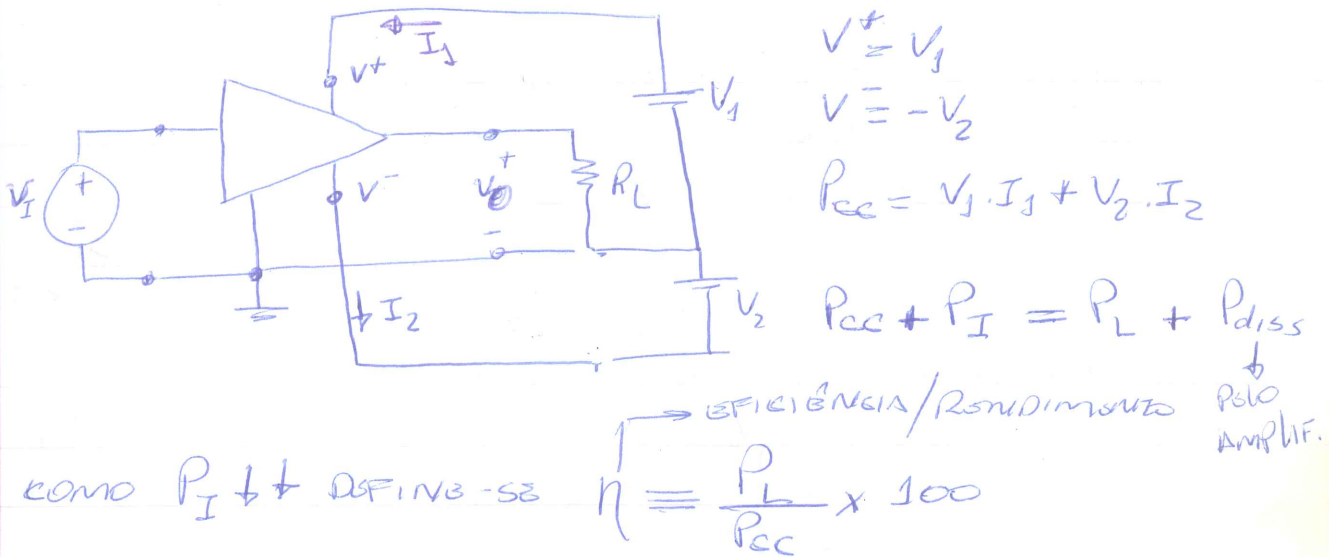 I₁
V⁺
V⁻
V_I
+
-
+
-
R_L
V₁
V₂
I₂
V⁺ = V₁
V⁻ = -V₂
Pcc = V₁.I₁ + V₂.I₂
Pcc + P_I = P_L + Pdiss
↓
PELO
AMPLIF.
→ EFICIÊNCIA/RENDIMENTO
COMO P_I ↓↓ DEFINE-SE η ≡ P_L/Pcc x 100